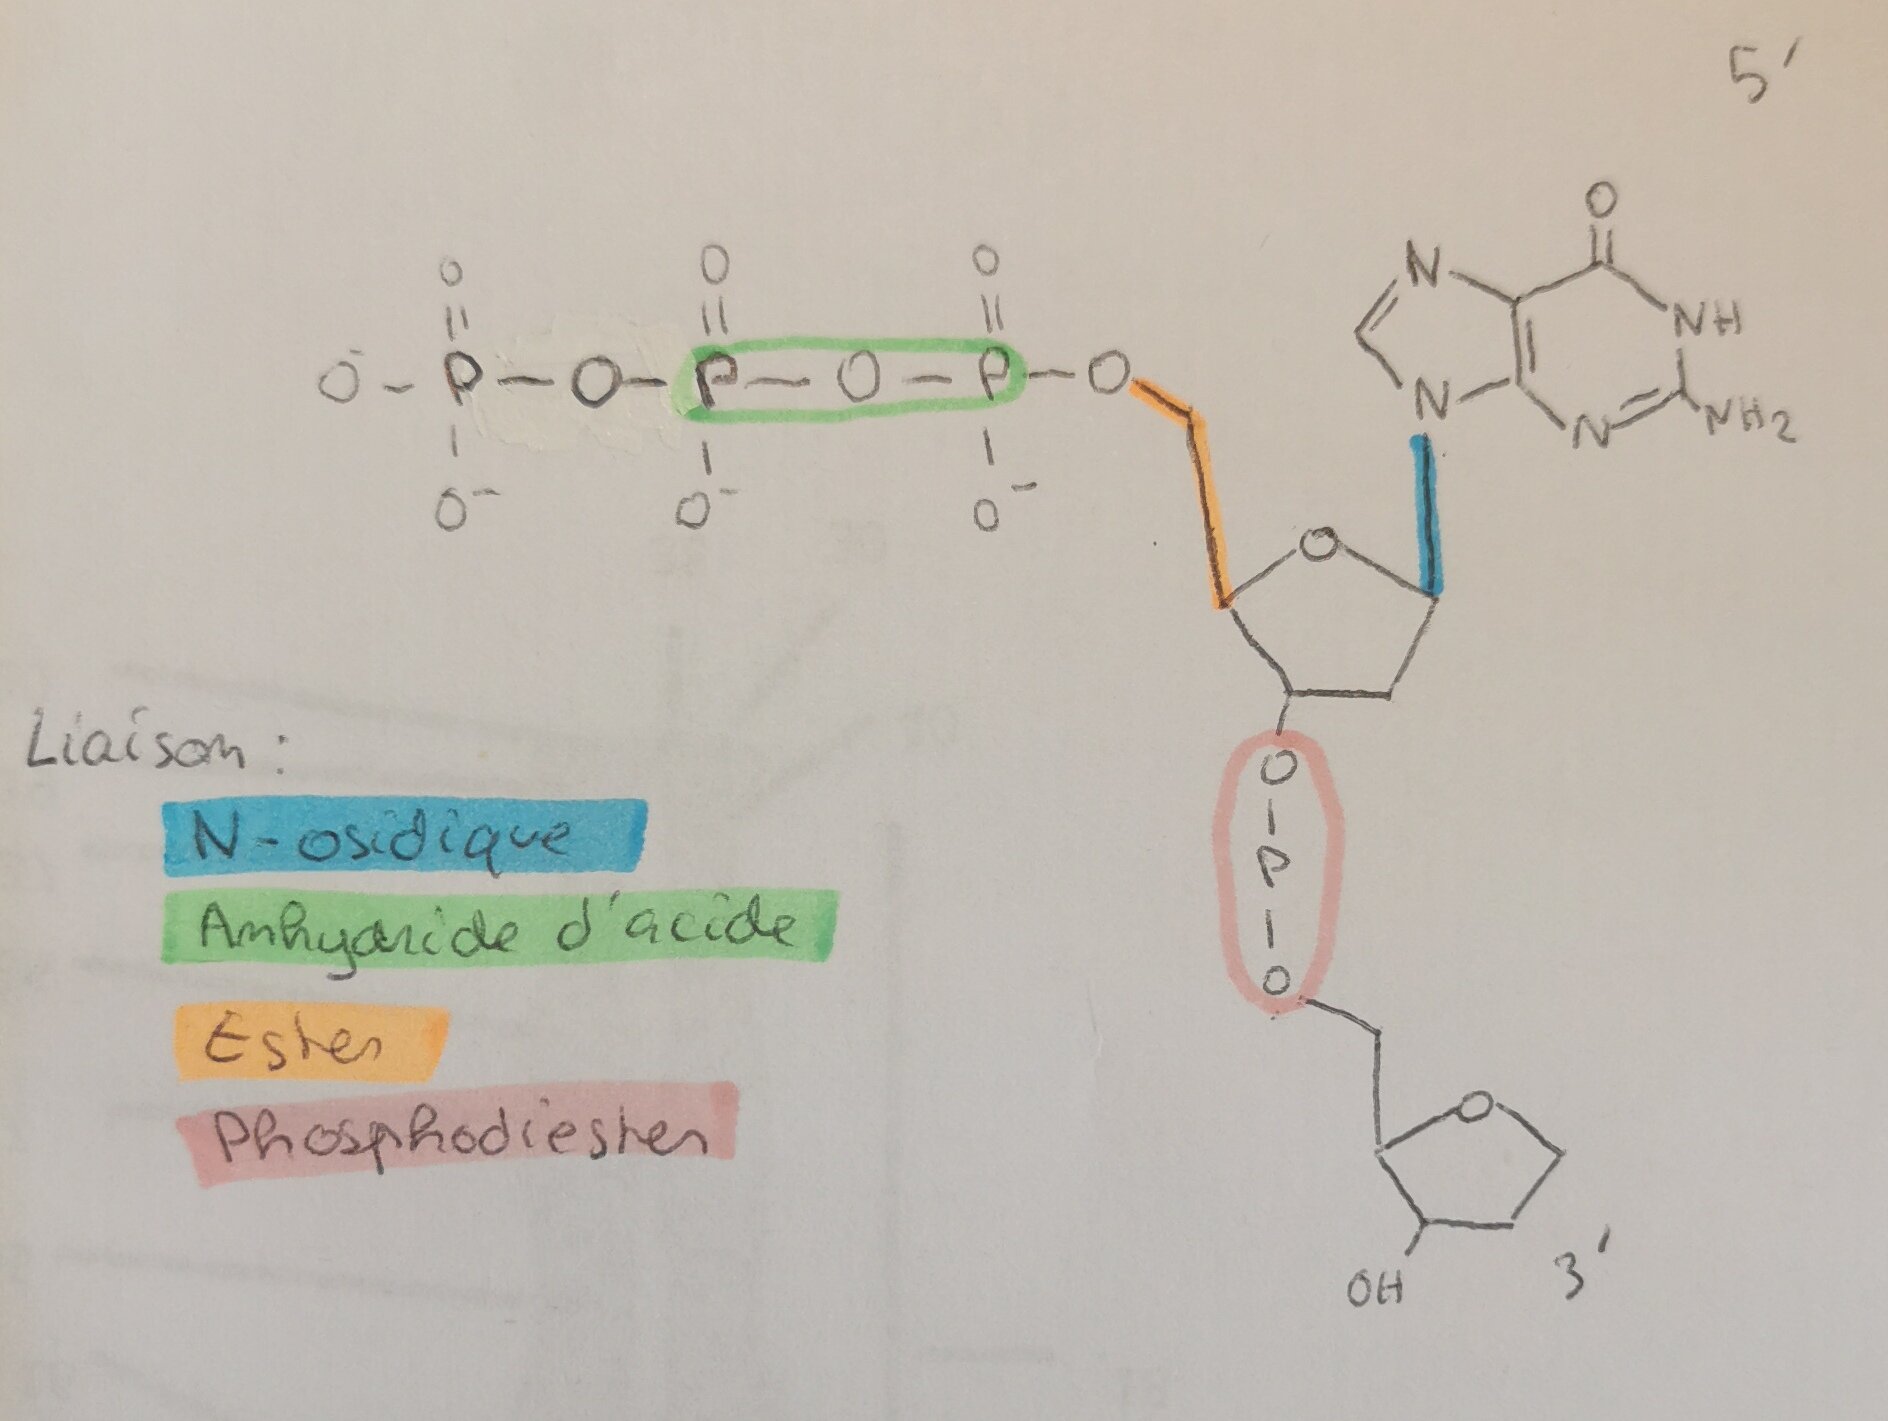 5'
O
O O O
N NH
O⁻ - P - O - P - O - P - O
N N NH2
O⁻ O⁻ O⁻
O
Liaison :
O
N-osidique
P
Anhydride d'acide
O
Ester
Phosphodiester
O
OH 3'